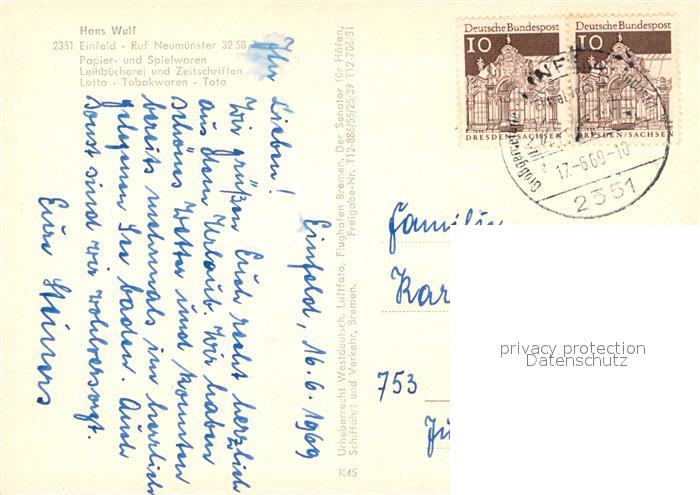 Hans Wulf
2351 Einfeld - Ruf Neumünster 32 58
Papier- und Spielwaren
Leihbücherei und Zeitschriften
Lotto - Tabakwaren - Toto
Einfeld, 16.6.1969
Ihr Lieben!
Wir grüßen Euch recht herzlich
aus dem Urlaub. Wir haben
schönes Wetter und konnten
bereits mehrmals im herrlich
gelegenen See baden. Auch
sonst sind wir wohlversorgt.
Eure Steiners
Urheberrecht Westdeutsch. Luftfoto, Flughafen Bremen. Der Senator für Häfen,
Schiffahrt und Verkehr, Bremen. Freigabe-Nr. T12-886/55/25/39 T12-706/51
K45
Deutsche Bundespost
10
DRESDEN/SACHSEN
Deutsche Bundespost
10
DRESDEN/SACHSEN
17.-6.69-10
2351
Familie
Kar
753
privacy protection
Datenschutz